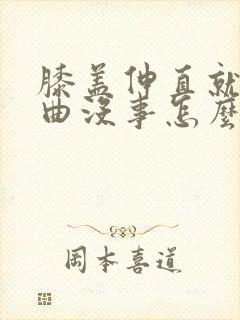 膝盖伸直就
曲没事怎麽
岡本喜道